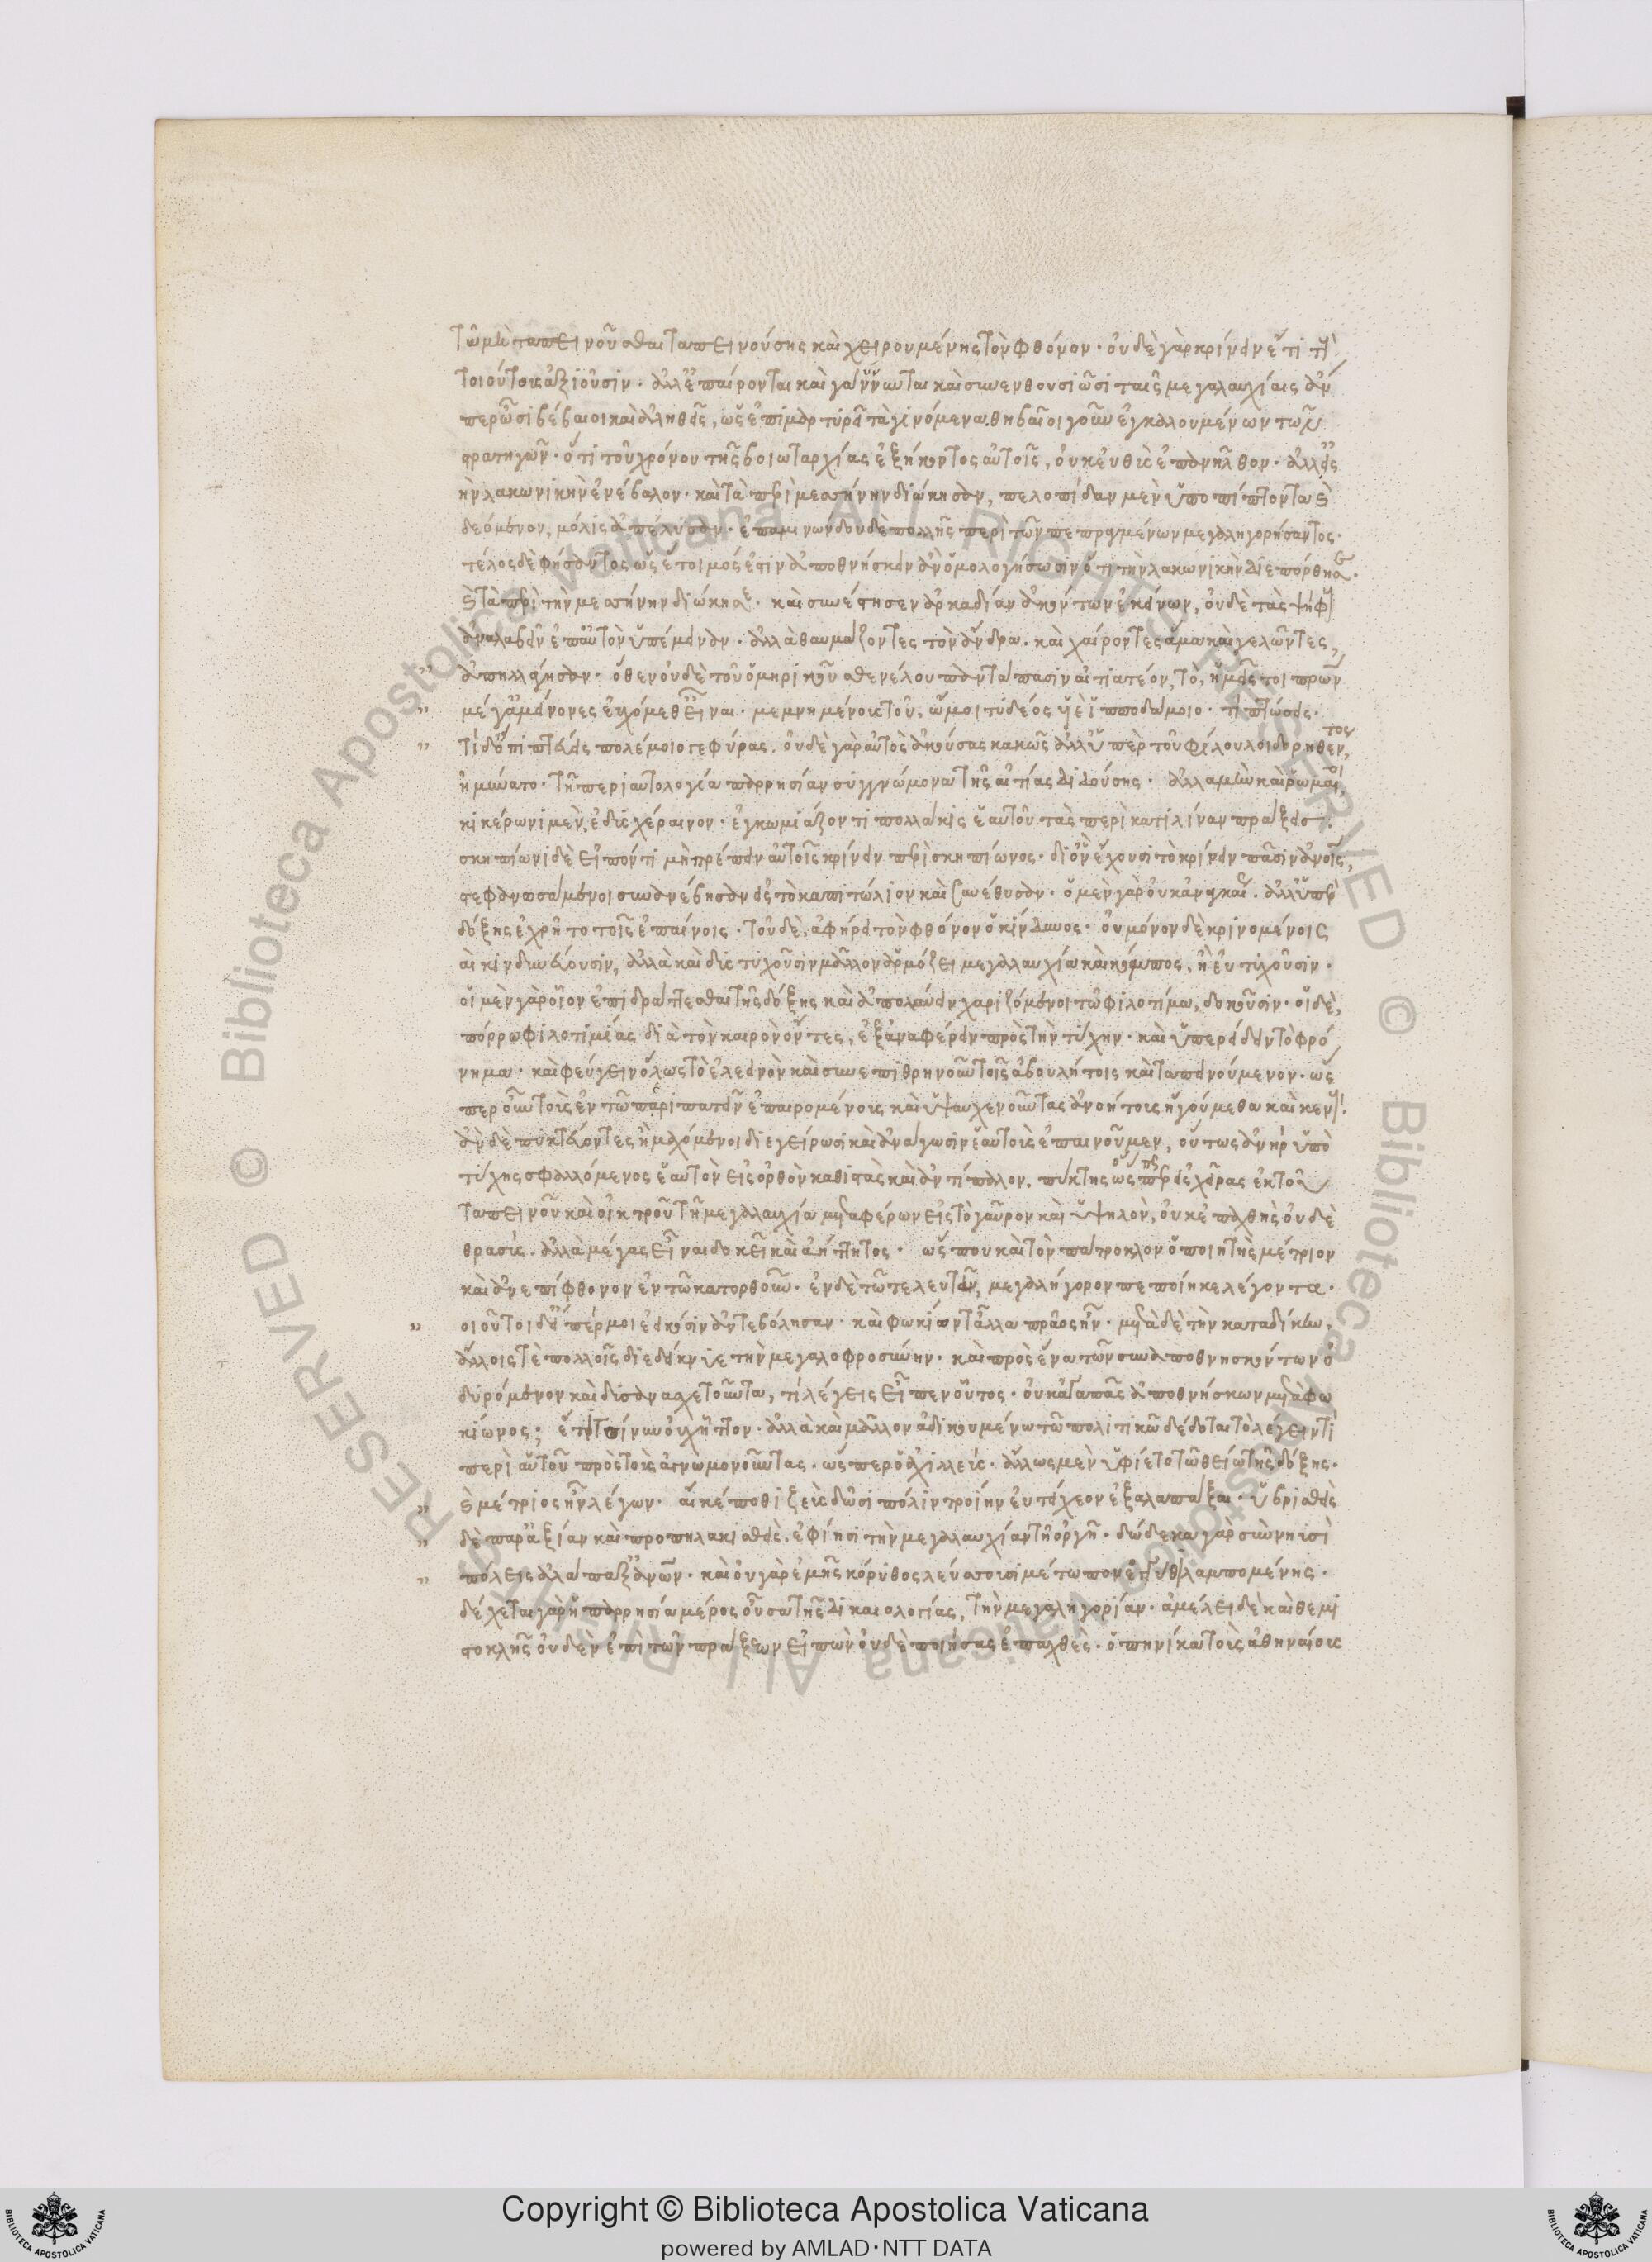 τῶ μὴ ταπεινοῦσθαι ταπεινούσης καὶ χειρουμένης τὸν φθόνον· οὐδὲ γὰρ κρίνειν ἔτι τοὺς
τοιούτους ἀξιοῦσιν· ἀλλ' ἐπαίρονται καὶ γάννυνται καὶ συνενθουσιῶσι ταῖς μεγαλαυχίαις ἄν
περ ὦσι βέβαιοι καὶ ἀληθεῖς, ὡς ἐπιμαρτυρεῖ τὰ γινόμενα. θηβαῖοι γοῦν ἐγκαλουμένων τῶν
στρατηγῶν· ὅτι τοῦ χρόνου τῆς βοιωταρχίας ἐξήκοντος αὐτοῖς, οὐκ εὐθὺς ἐπανῆλθον· ἀλλ' εἰς
ὴν λακωνικὴν ἐνέβαλον· καὶ τὰ περὶ μεσσήνην διώκησαν, πελοπίδαν μὲν ὑποπίπτοντα καὶ
δεόμενον, μόλις ἀπέλυσαν· ἐπαμινώνδου δὲ πολλῆς περὶ τῶν πεπραγμένων μεγαληγορήσαντος·
τέλος δὲ φήσαντος ὡς ἕτοιμός ἐστιν ἀποθνήσκειν ἂν ὁμολογήσωσιν ὅτι τὴν λακωνικὴν διεπόρθησε·
καὶ τὰ περὶ τὴν μεσσήνην διώκησε· καὶ συνέστησεν ἀρκαδίαν ἀκόντων ἐκείνων, οὐδὲ τὰς ψήφους
ἀναλαβεῖν ἐπ' αὐτὸν ὑπέμειναν· ἀλλὰ θαυμάζοντες τὸν ἄνδρα. καὶ χαίροντες ἅμα καὶ γελῶντες,
" ἀπηλλάγησαν· ὅθεν οὐδὲ τοῦ ὁμηρικοῦ σθενέλου παντάπασιν αἰτιατέον, τό, ἡμεῖς τοι πρων
" μέγ' ἀμείνονες εὐχόμεθ' εἶναι· μεμνημένους τοῦ, ὤμοι τυδέος υἱὲ ἱπποδάμοιο· τί πτώσεις·
" τί δ' ὀπιπτεύεις πολέμοιο γεφύρας. οὐδὲ γὰρ αὐτὸς ἀκούσας κακῶς ἀλλ' ὑπὲρ τοῦ φίλου λοιδορηθέντος,
ἠμύνατο· τῆ περιαυτολογία παρρησίαν συγγνώμονα τῆς αἰτίας διδούσης· ἀλλὰ μὴν καὶ ῥωμαῖοι,
κικέρωνι μὲν, ἐδυσχέραινον· ἐγκωμιάζοντι πολλάκις ἑαυτοῦ τὰς περὶ κατιλίναν πράξεις·
σκηπίωνι δὲ εἰπόντι μὴ πρέπειν αὐτοῖς κρίνειν περὶ σκηπίωνος· δι' ὃν ἔχουσι τὸ κρίνειν πᾶσιν ἀνοις,
στεφανωσάμενοι συνανέβησαν εἰς τὸ καπιτώλιον καὶ συνέθυσαν· ὁ μὲν γὰρ οὐκ ἀναγκαίως. ἀλλ' ὑπὲρ
δόξης ἐχρῆτο τοῖς ἐπαίνοις· τοῦ δὲ, ἀφήρει τὸν φθόνον ὁ κίνδυνος· οὐ μόνον δὲ κρινομένοις
καὶ κινδυνεύουσιν, ἀλλὰ καὶ δυστυχοῦσιν μᾶλλον ἁρμόζει μεγαλαυχία καὶ κόμπος, ἢ εὐτυχοῦσιν·
οἱ μὲν γὰρ οἷον ἐπιδράττεσθαι τῆς δόξης καὶ ἀπολαύειν χαριζόμενοι τῶ φιλοτίμω, δοκοῦσιν· οἱ δὲ,
πόρρω φιλοτιμίας διὰ τὸν καιρὸν ὄντες, ἐξαναφέρειν πρὸς τὴν τύχην· καὶ ὑπερείδειν τὸ φρό
νημα· καὶ φεύγειν ὅλως τὸ ἐλεεινὸν καὶ συνεπιθρηνοῦν τοῖς ἀβουλήτοις καὶ ταπεινούμενον· ὥς
περ οὖν τοὺς ἐν τῶ περιπατεῖν ἐπαιρομένους καὶ ὑψαυχενοῦντας ἀνοήτους ἡγούμεθα καὶ κενούς·
ἂν δὲ πυκτεύοντες ἢ μαχόμενοι διεγείρωσι καὶ ἀνάγωσιν ἑαυτοὺς ἐπαινοῦμεν, οὕτως ἀνὴρ ὑπὸ
τύχης σφαλλόμενος ἑαυτὸν εἰς ὀρθὸν καθιστὰς καὶ ἀντίπαλον. πύκτης ὥσπερ εἰς χεῖρας ἐκ τοῦ
ταπεινοῦ καὶ οἰκτροῦ τῆ μεγαλαυχία μεταφέρων εἰς τὸ γαῦρον καὶ ὑψηλὸν, οὐκ ἐπαχθὴς οὐδὲ
θρασύς. ἀλλὰ μέγας εἶναι δοκεῖ καὶ ἀήττητος· ὥς που καὶ τὸν πάτροκλον ὁ ποιητὴς μέτριον
καὶ ἀνεπίφθονον ἐν τῶ κατορθοῦν· ἐν δὲ τῶ τελευτᾶν, μεγαλήγορον πεποίηκε λέγοντα·
" τοιοῦτοι δ' εἴπερ μοι ἐείκοσιν ἀντεβόλησαν· καὶ φωκίων τἄλλα πρᾶος ἦν· μετὰ δὲ τὴν καταδίκην,
ἄλλοις τὲ πολλοῖς διεδείκνυε τὴν μεγαλοφροσύνην· καὶ πρὸς ἕνα τῶν συναποθνησκόντων ὀ
δυρόμενον καὶ δυσανασχετοῦντα, τί λέγεις εἶπεν οὗτος· οὐκ ἀγαπᾶς ἀποθνήσκων μετὰ φω
κίωνος; ἔτι τοίνυν οὐχ ἧττον· ἀλλὰ καὶ μᾶλλον ἀδικουμένω τῶ πολιτικῶ δέδοται τὸ λέγειν τι
περὶ αὑτοῦ πρὸς τοὺς ἀγνωμονοῦντας. ὥσπερ ὁ ἀχιλλεύς. ἄλλως μὲν ὑφίετο τῶ θείω τῆς δόξης·
" καὶ μέτριος ἦν λέγων· αἴ κέ ποθι ζεὺς δῶσι πόλιν τροίην εὐτείχεον ἐξαλαπάξαι· ὑβρισθεὶς
" δὲ παρ' ἀξίαν καὶ προπηλακισθεὶς. ἐφίησι τὴν μεγαλαυχίαν τῆ ὀργῆ· δώδεκα γὰρ σὺν νηυσὶ
" πόλεις ἀλάπαξ' ἀνων· καὶ οὐ γὰρ ἐμῆς κόρυθος λεύσσουσι μέτωπον ἐγγύθι λαμπομένης·
δέχεται γὰρ ἡ παρρησία μέρος οὖσα τῆς δικαιολογίας, τὴν μεγαληγορίαν· ἀμέλει δὲ καὶ θεμι
στοκλῆς οὐδὲν ἐπὶ τῶν πράξεων εἰπὼν οὐδὲ ποιήσας ἐπαχθὲς· ὁπηνίκα τοὺς ἀθηναίους
Copyright © Biblioteca Apostolica Vaticana
powered by AMLAD·NTT DATA